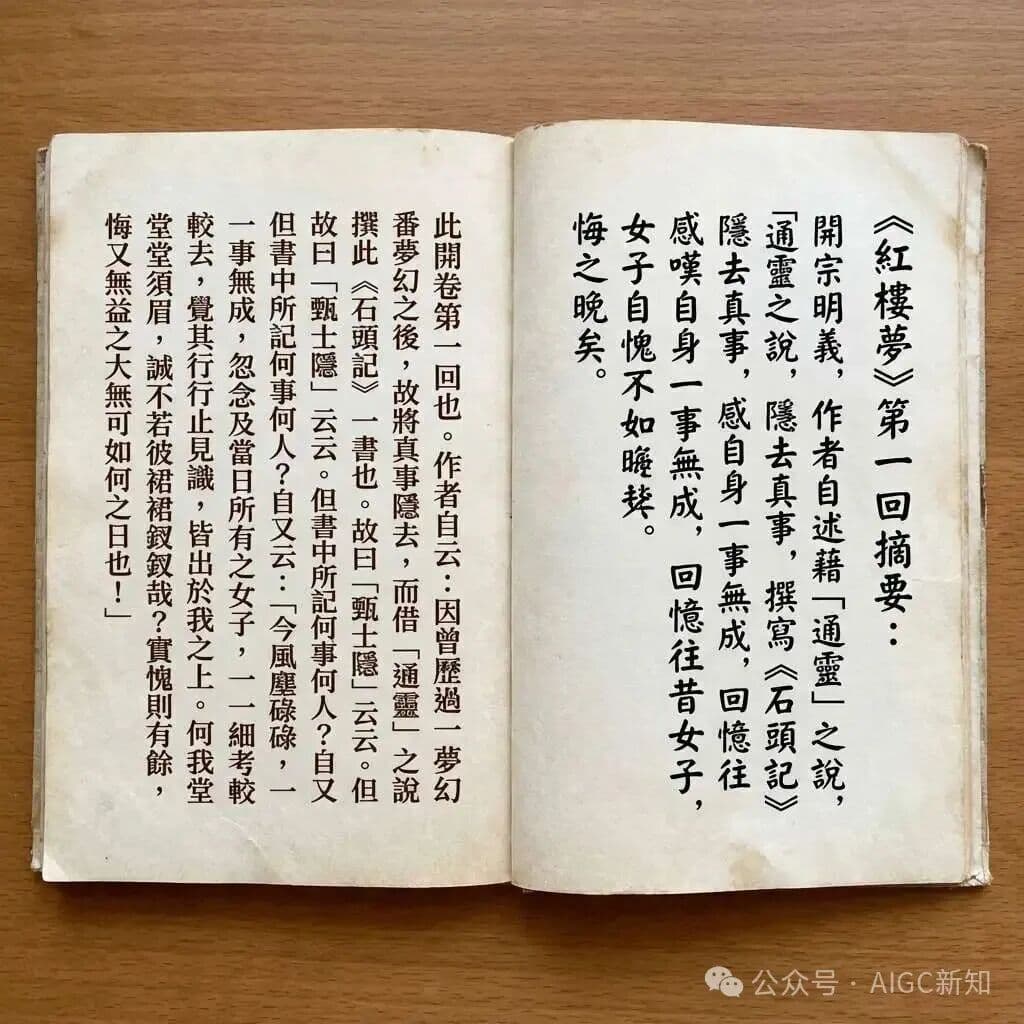 《紅樓夢》第一回摘要：
開宗明義，作者自述藉「通靈」之說，
「通靈之說，隱去真事，撰寫《石頭記》
隱去真事，感自身一事無成，回憶往
感嘆自身一事無成，回憶往昔女子，
女子自愧不如
悔之晚矣。
此開卷第一回也。作者自云：因曾歷過一夢幻
番夢幻之後，故將真事隱去，而借「通靈」之說
撰此《石頭記》一書也。故曰「甄士隱」云云。但
故曰「甄士隱」云云。但書中所記何事何人？自又
但書中所記何事何人？自又云：「今風塵碌碌，一
一事無成，忽念及當日所有之女子，一一細考較
較去，覺其行行止見識，皆出於我之上。何我堂
堂堂須眉，誠不若彼裙裙釵釵哉？實愧則有餘，
悔又無益之大無可如何之日也！」
公众号 · AIGC新知